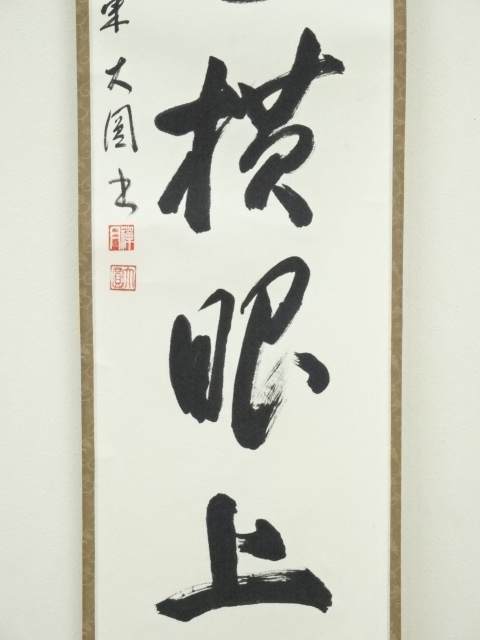 横眼上
大圓書